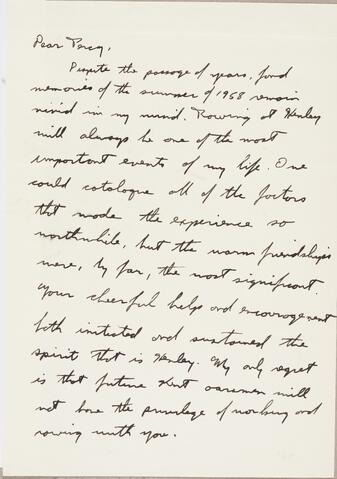 Dear Percy,
Despite the passage of years, fond
memories of the summer of 1958 remain
vivid in my mind. Rowing at Henley
will always be one of the most
important events of my life. One
could catalogue all of the factors
that made the experience so
worthwhile, but the warm friendships
were, by far, the most significant.
Your cheerful help and encouragement
both initiated and sustained the
spirit that is Henley. My only regret
is that future Kent oarsmen will
not have the privilege of working and
rowing with you.